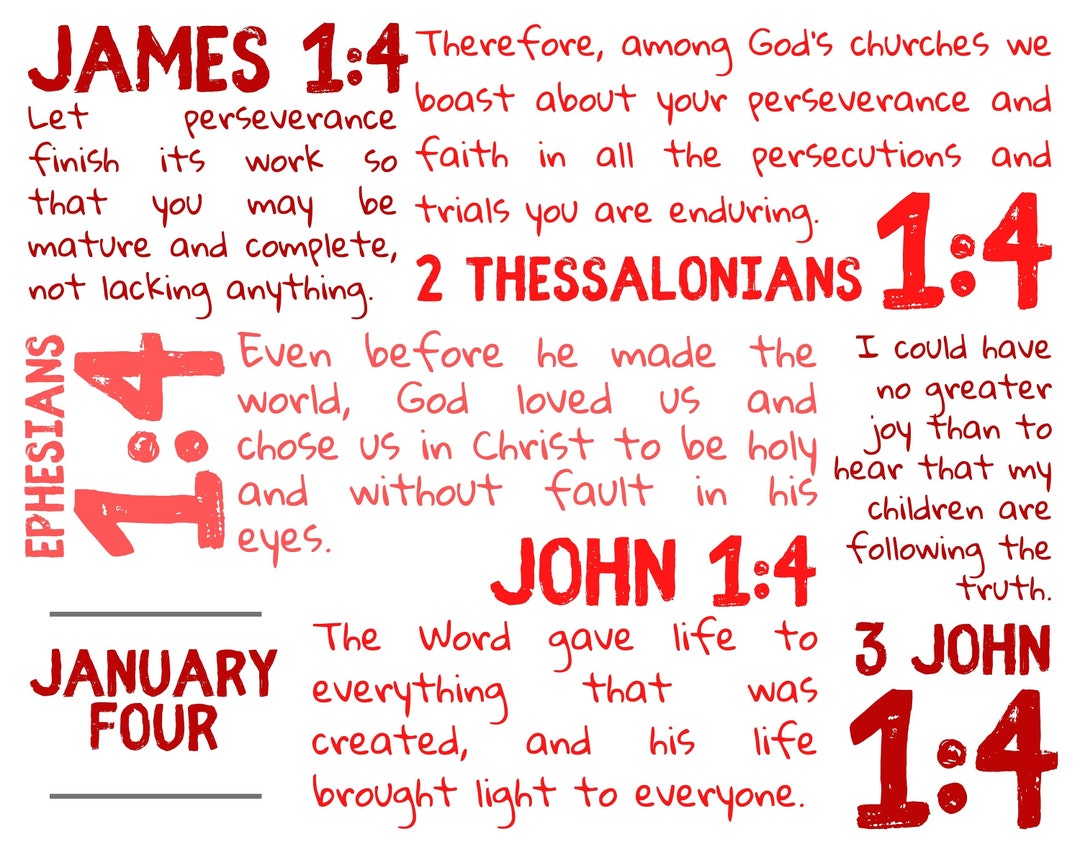 JAMES 1:4
Let perseverance
finish its work so
that you may be
mature and complete,
not lacking anything.
Therefore, among God's churches we
boast about your perseverance and
faith in all the persecutions and
trials you are enduring.
2 THESSALONIANS 1:4
EPHESIANS
1:4
Even before he made the
world, God loved us and
chose us in Christ to be holy
and without fault in his
eyes.
I could have
no greater
joy than to
hear that my
children are
following the
truth.
3 JOHN
1:4
JOHN 1:4
The Word gave life to
everything that was
created, and his life
brought light to everyone.
JANUARY
FOUR